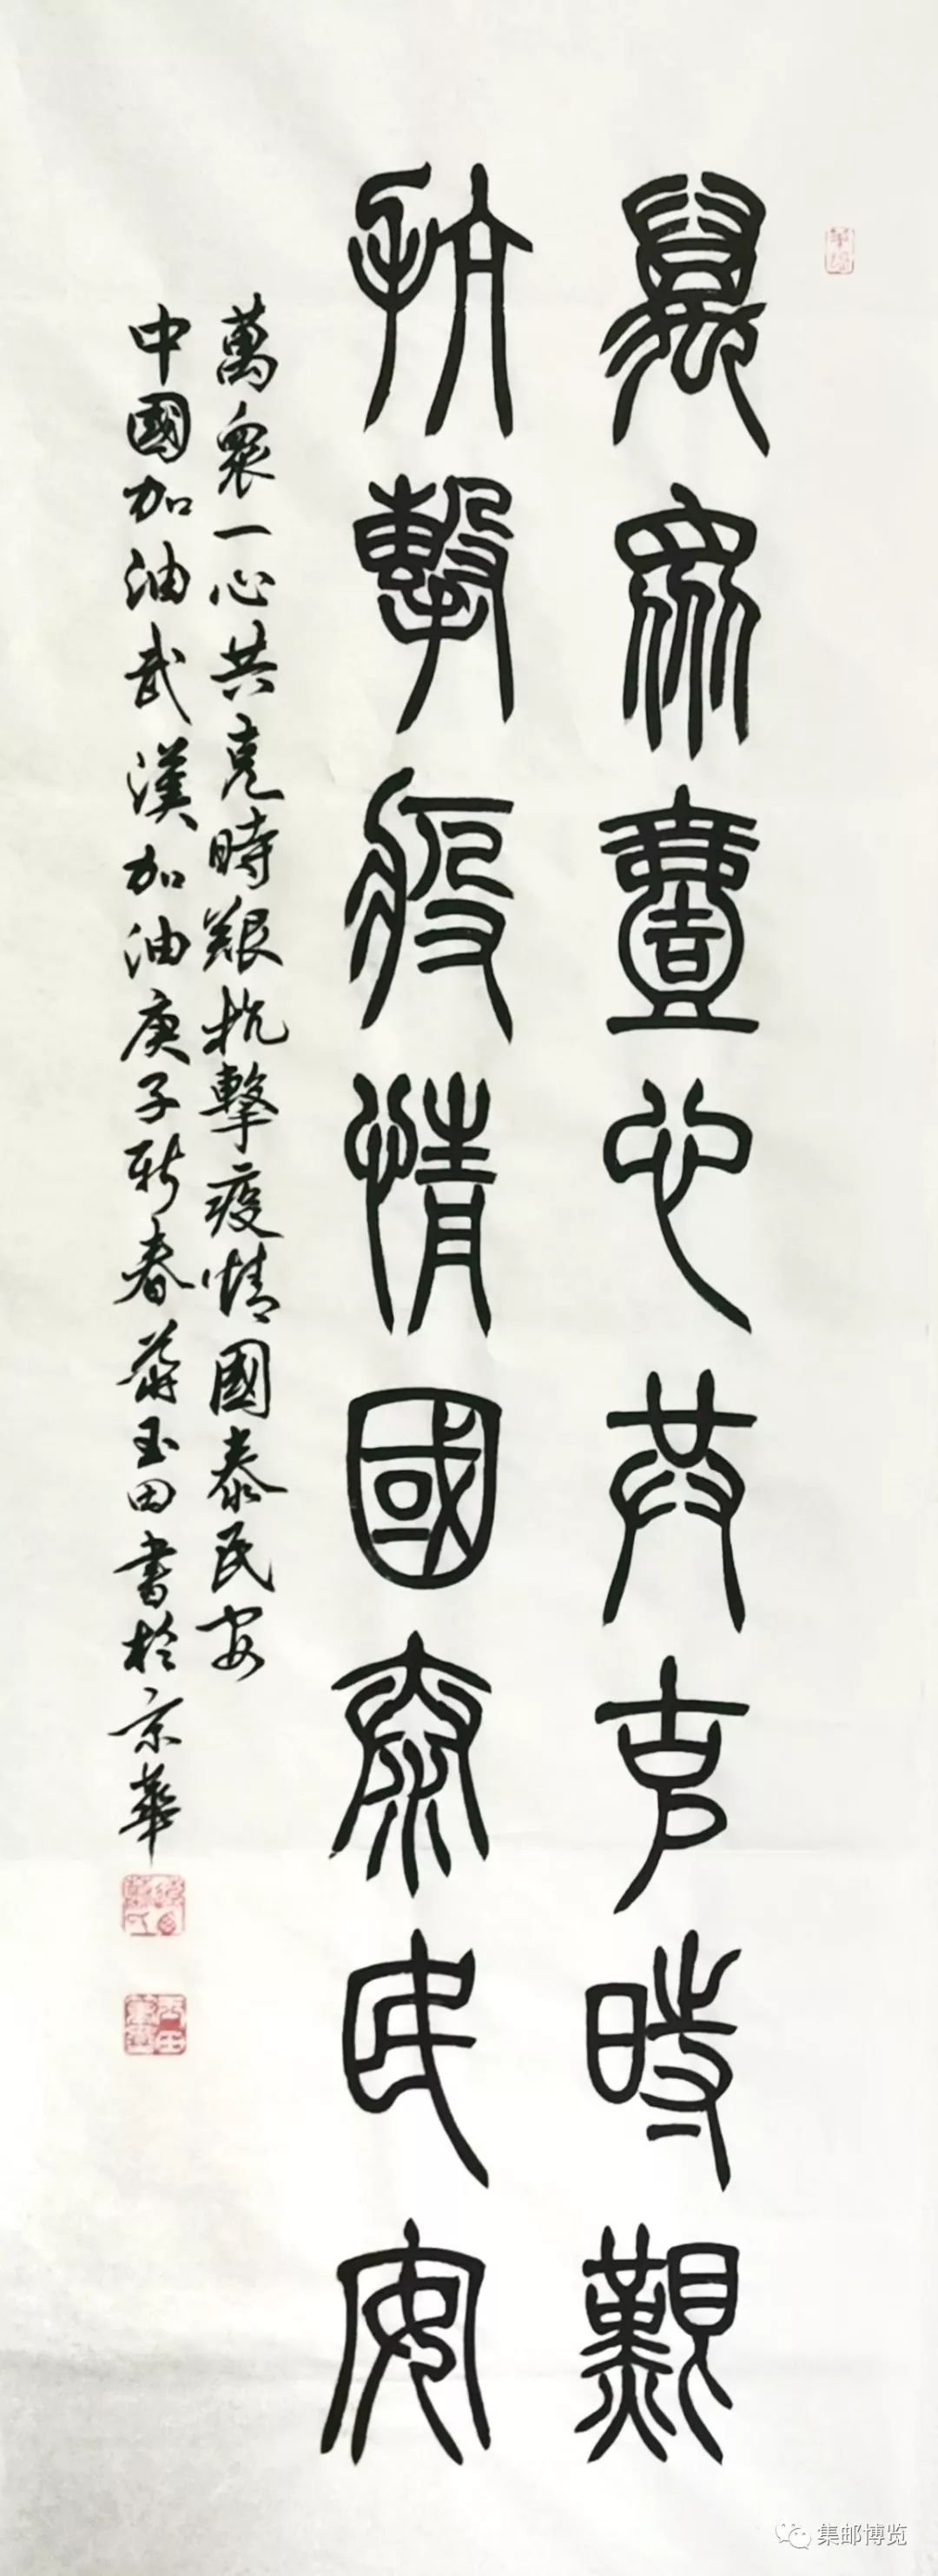 萬衆壹心共克時艱
抗擊疫情國泰民安
萬衆一心共克時艱抗擊疫情國泰民安
中國加油武漢加油庚子新春蕭玉田書於京華
集邮博览